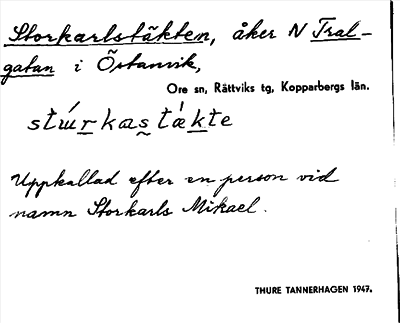 Storkarlstäkten, åker N Tral-
gatan i Östanvik,
Ore sn, Rättviks tg, Kopparbergs län.
stɯ́rkas̰tækte
Uppkallad efter en person vid
namn Storkarls Mikael.
THURE TANNERHAGEN 1947.